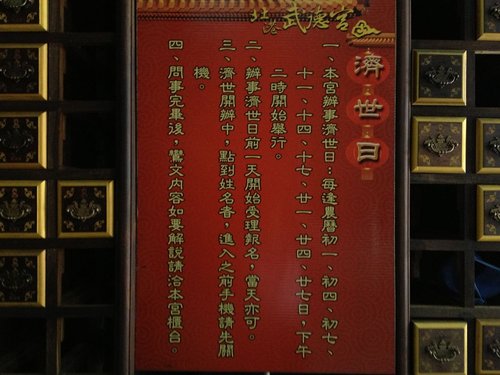 社港武德宮
濟世日
一、本宮辦事濟世日：每逢農曆初一、初四、初七、
十一、十四、十七、廿一、廿四、廿七日，下午
二時開始舉行。
二、辦事濟世日前一天開始受理報名，當天亦可。
三、濟世開辦中，點到姓名者，進入之前手機請先關
機。
四、問事完畢後，鸞文內容如要解說請洽本宮櫃台。